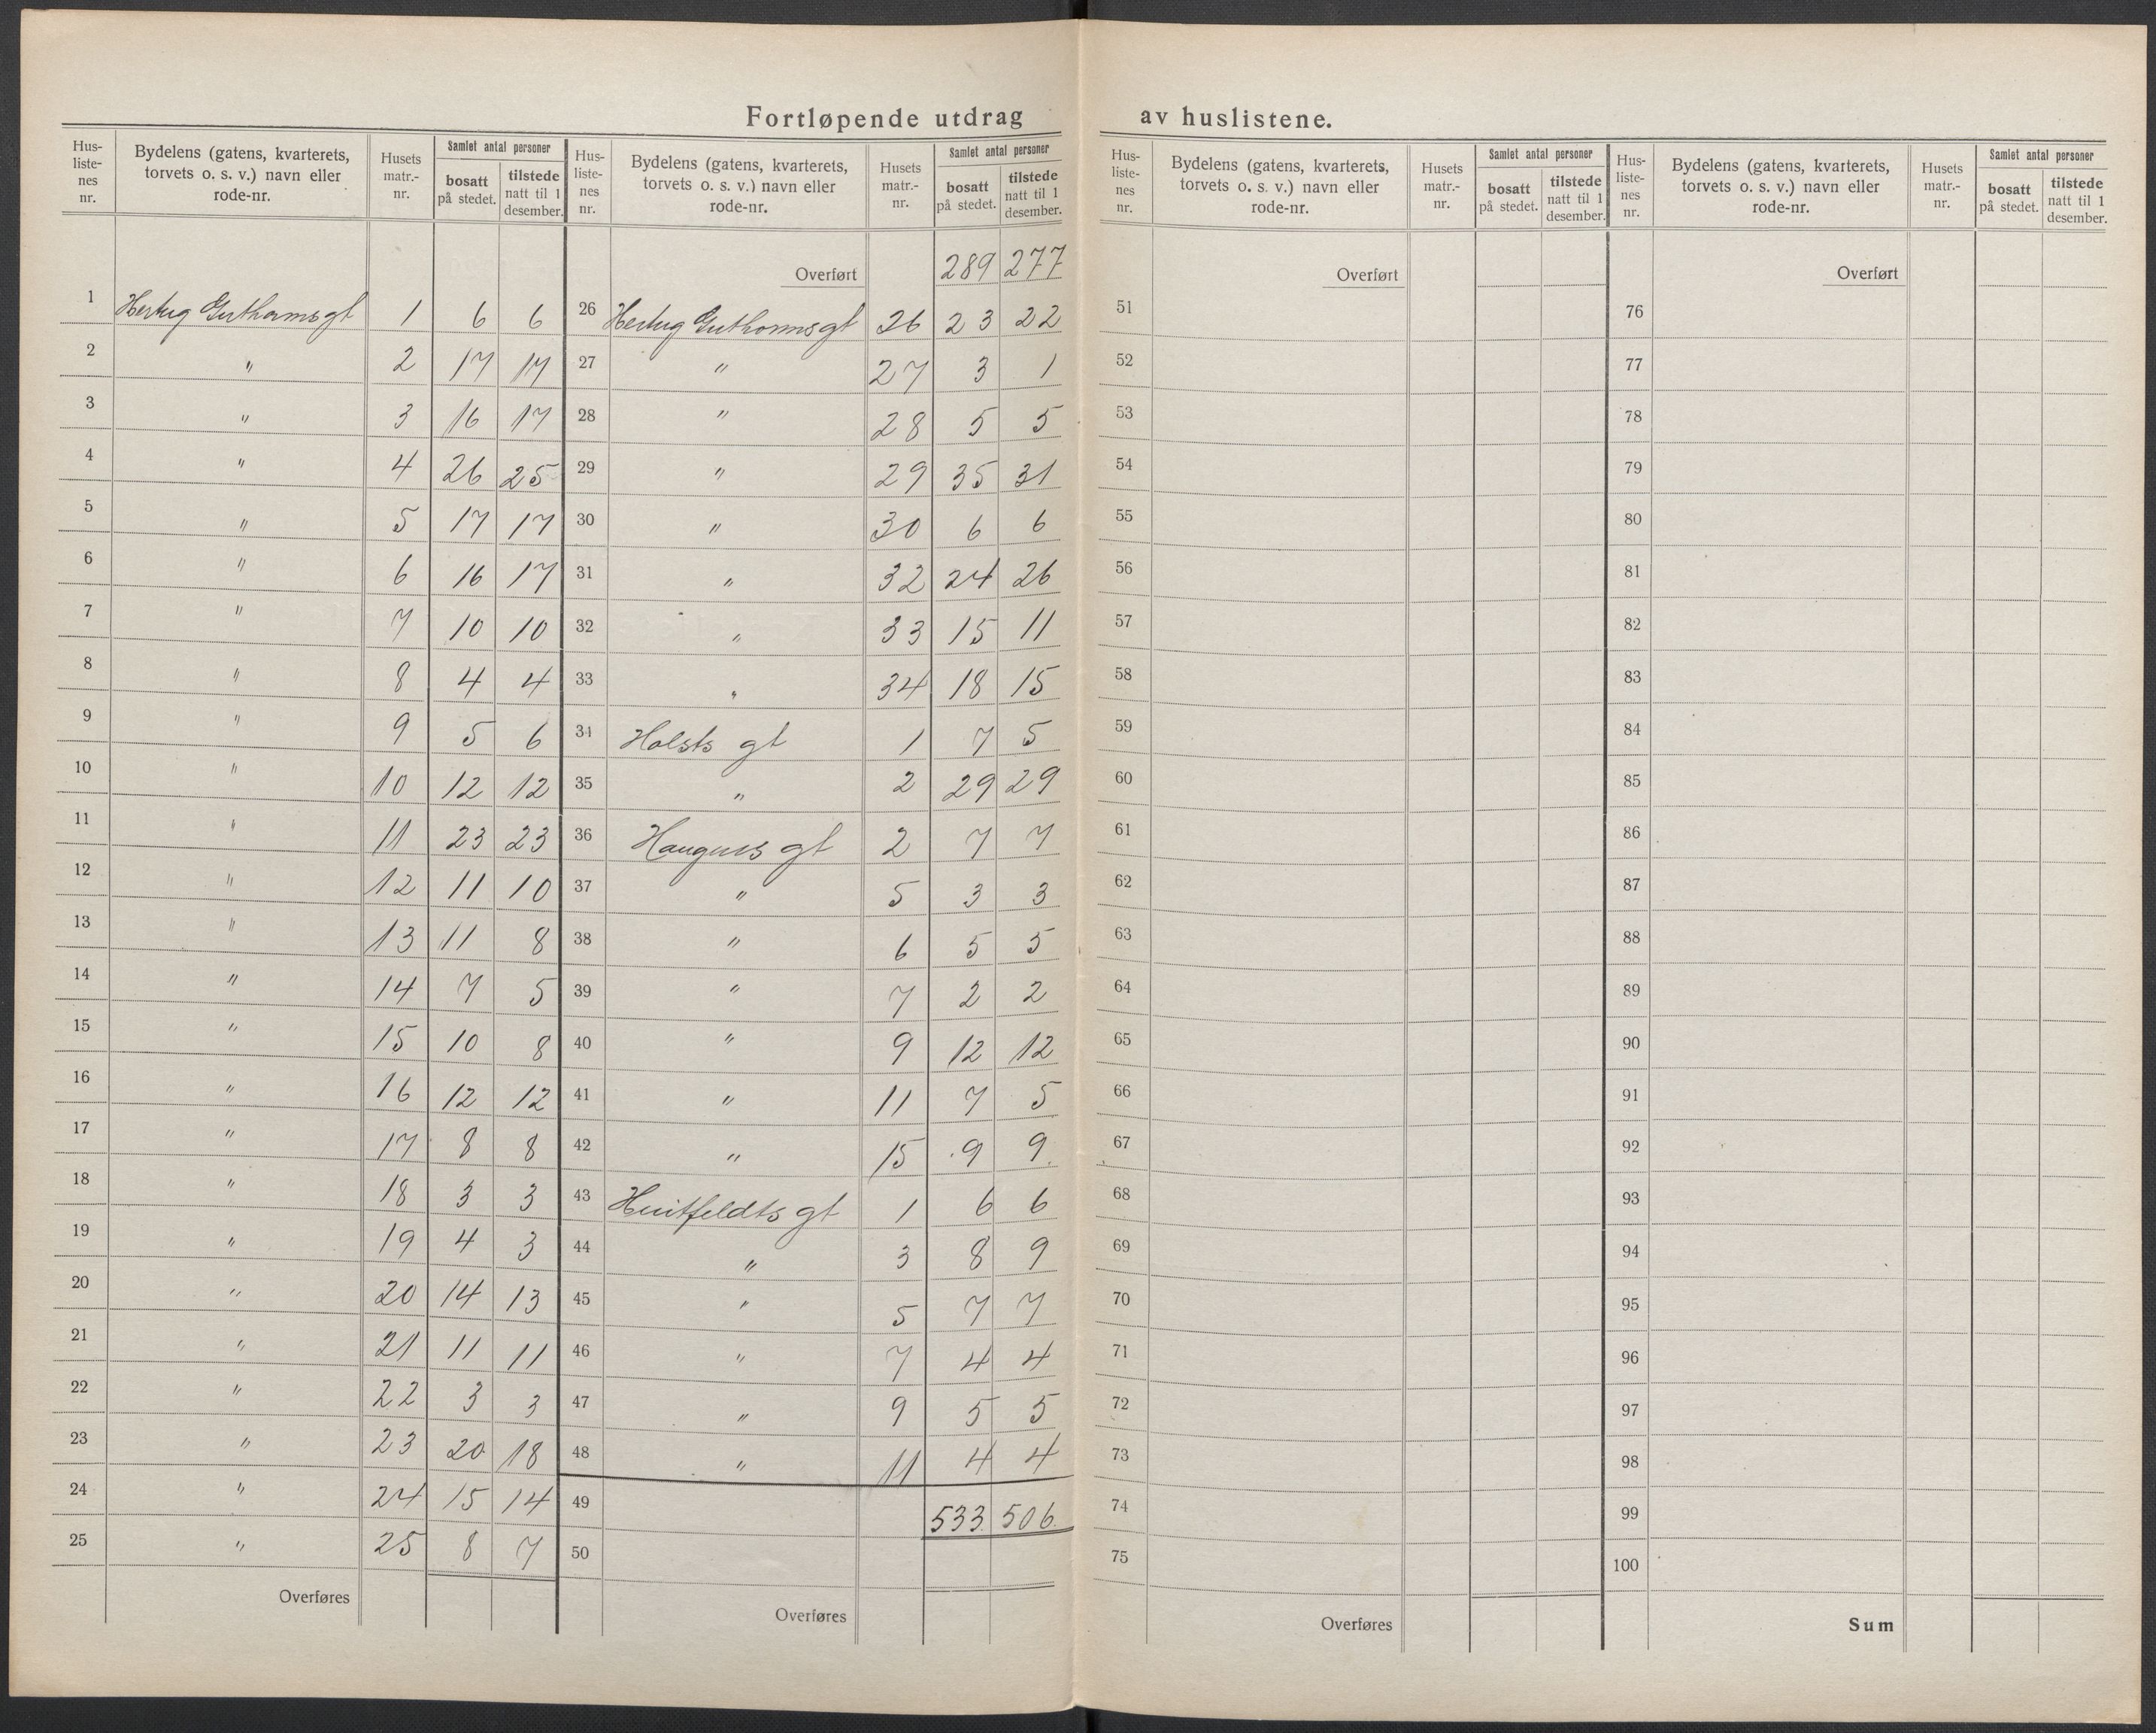 Fortløpende utdrag av huslistene.
Hus-listenes nr. | Bydelens (gatens, kvarterets, torvets o. s. v.) navn eller rode-nr. | Husets matr.-nr. | Samlet antal personer bosatt på stedet. | tilstede natt til 1 desember.
1 Hertug Guthormsgt 1 6 6
2 " 2 17 17
3 " 3 16 17
4 " 4 26 25
5 " 5 17 17
6 " 6 16 17
7 " 7 10 10
8 " 8 4 4
9 " 9 5 6
10 " 10 12 12
11 " 11 23 23
12 " 12 11 10
13 " 13 11 8
14 " 14 7 5
15 " 15 10 8
16 " 16 12 12
17 " 17 8 8
18 " 18 3 3
19 " 19 4 3
20 " 20 14 13
21 " 21 11 11
22 " 22 3 3
23 " 23 20 18
24 " 24 15 14
25 " 25 8 7
Overføres
Hus-listenes nr. | Bydelens (gatens, kvarterets, torvets o. s. v.) navn eller rode-nr. | Husets matr.-nr. | Samlet antal personer bosatt på stedet. | tilstede natt til 1 desember.
Overført 289 277
26 Hertug Guthormsgt 26 23 22
27 " 27 3 1
28 " 28 5 5
29 " 29 35 31
30 " 30 6 6
31 " 32 24 26
32 " 33 15 11
33 " 34 18 15
34 Holsts gt 1 7 5
35 " 2 29 29
36 Haugnes gt 2 7 7
37 " 5 3 3
38 " 6 5 5
39 " 7 2 2
40 " 9 12 12
41 " 11 7 5
42 " 15 9 9
43 Huitfeldts gt 1 6 6
44 " 3 8 9
45 " 5 7 7
46 " 7 4 4
47 " 9 5 5
48 " 11 4 4
49 533 506
50
Overføres
Hus-listenes nr. | Bydelens (gatens, kvarterets, torvets o. s. v.) navn eller rode-nr. | Husets matr.-nr. | Samlet antal personer bosatt på stedet. | tilstede natt til 1 desember.
Overført
51
52
53
54
55
56
57
58
59
60
61
62
63
64
65
66
67
68
69
70
71
72
73
74
75
Overføres
Hus-listenes nr. | Bydelens (gatens, kvarterets, torvets o. s. v.) navn eller rode-nr. | Husets matr.-nr. | Samlet antal personer bosatt på stedet. | tilstede natt til 1 desember.
Overført
76
77
78
79
80
81
82
83
84
85
86
87
88
89
90
91
92
93
94
95
96
97
98
99
100
Sum